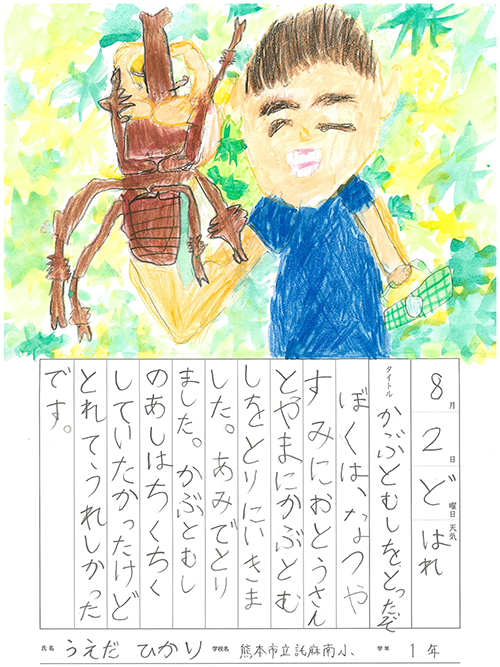 8月2日ど曜日 天気はれ
タイトル かぶとむしをとったぞ
ぼくは、なつや
すみにおとうさん
とやまにかぶとむ
しをとりにいきま
した。あみでとり
ました。かぶとむし
のあしはちくちく
していたかったけど
とれてうれしかった
です。
氏名 うえだ ひかり 学校名 熊本市立託麻南小 学年 1年